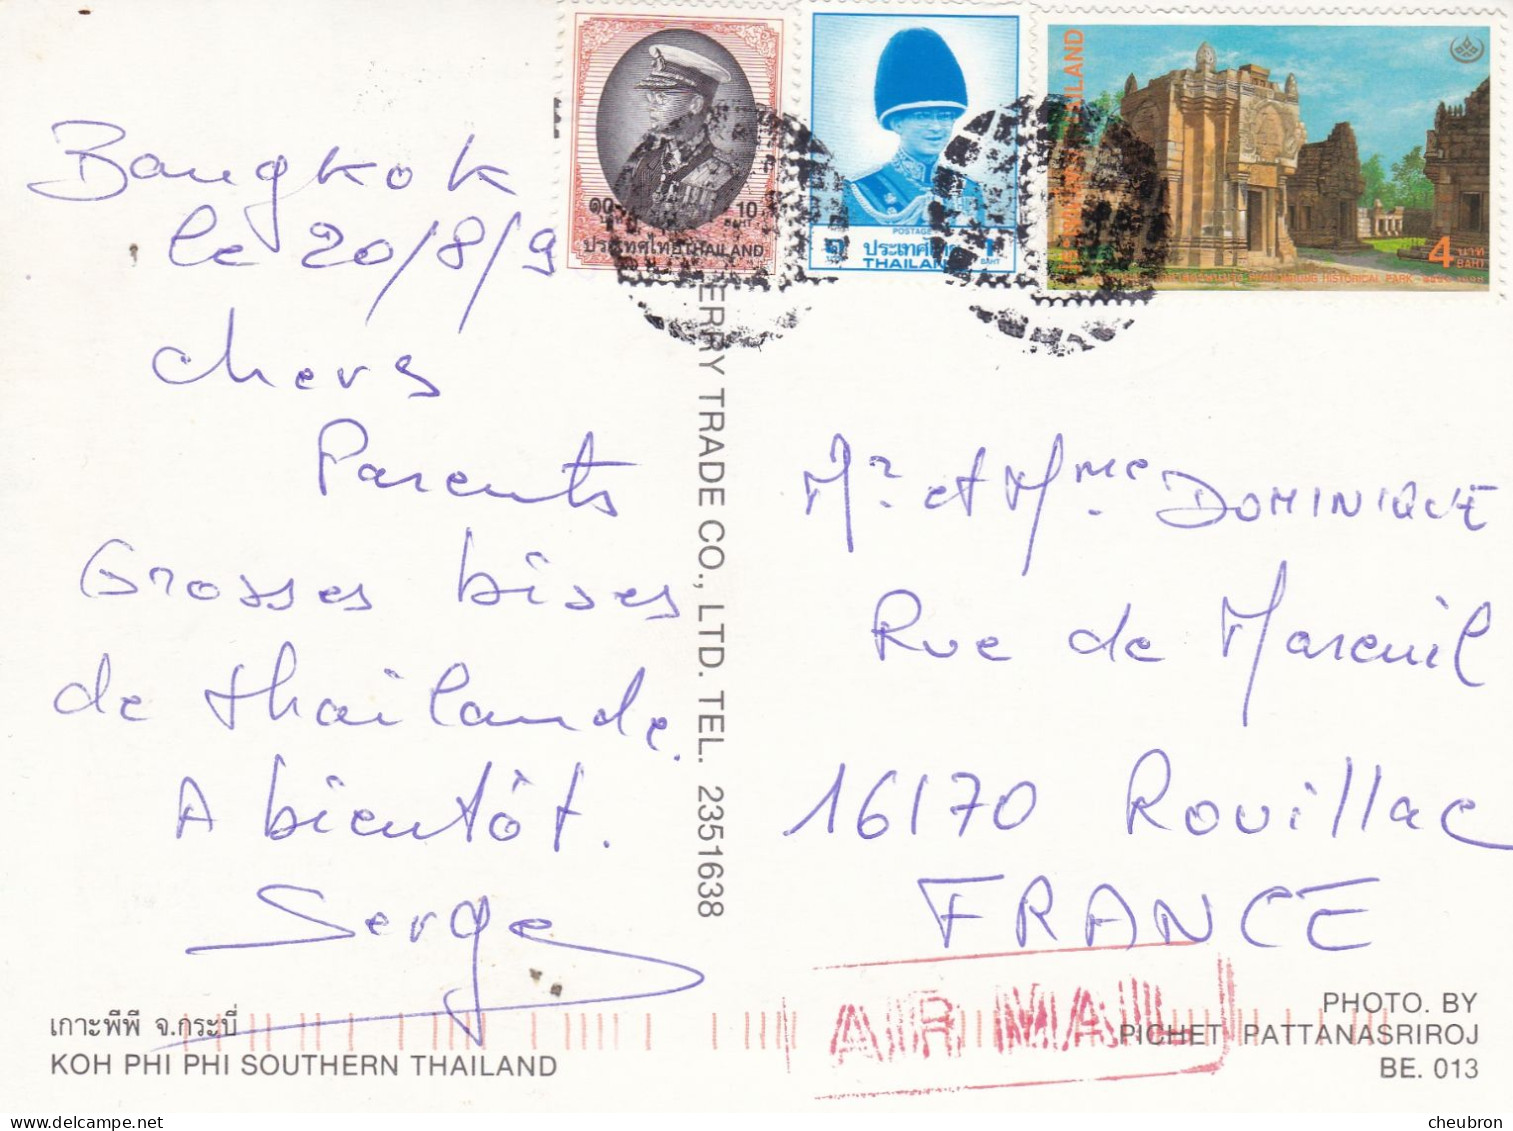 Bangkok
le 20/8/9
chers
Parents
Grosses bises
de thaïlande.
A bientôt.
Serge
๑๐ 10
บาท BAHT
ประเทศไทย THAILAND
POSTAGE
๑ ประเทศไทย 1
THAILAND BAHT
THAILAND
4 บาท
BAHT
HISTORICAL PARK
ERRY TRADE CO., LTD. TEL. 2351638
Mr. et Mme. DOMINIQUE
Rue de Mareuil
16170 Rouillac
FRANCE
AIR MAIL
เกาะพีพี จ.กระบี่
KOH PHI PHI SOUTHERN THAILAND
PHOTO. BY
PICHET PATTANASRIROJ
BE. 013
cheubron